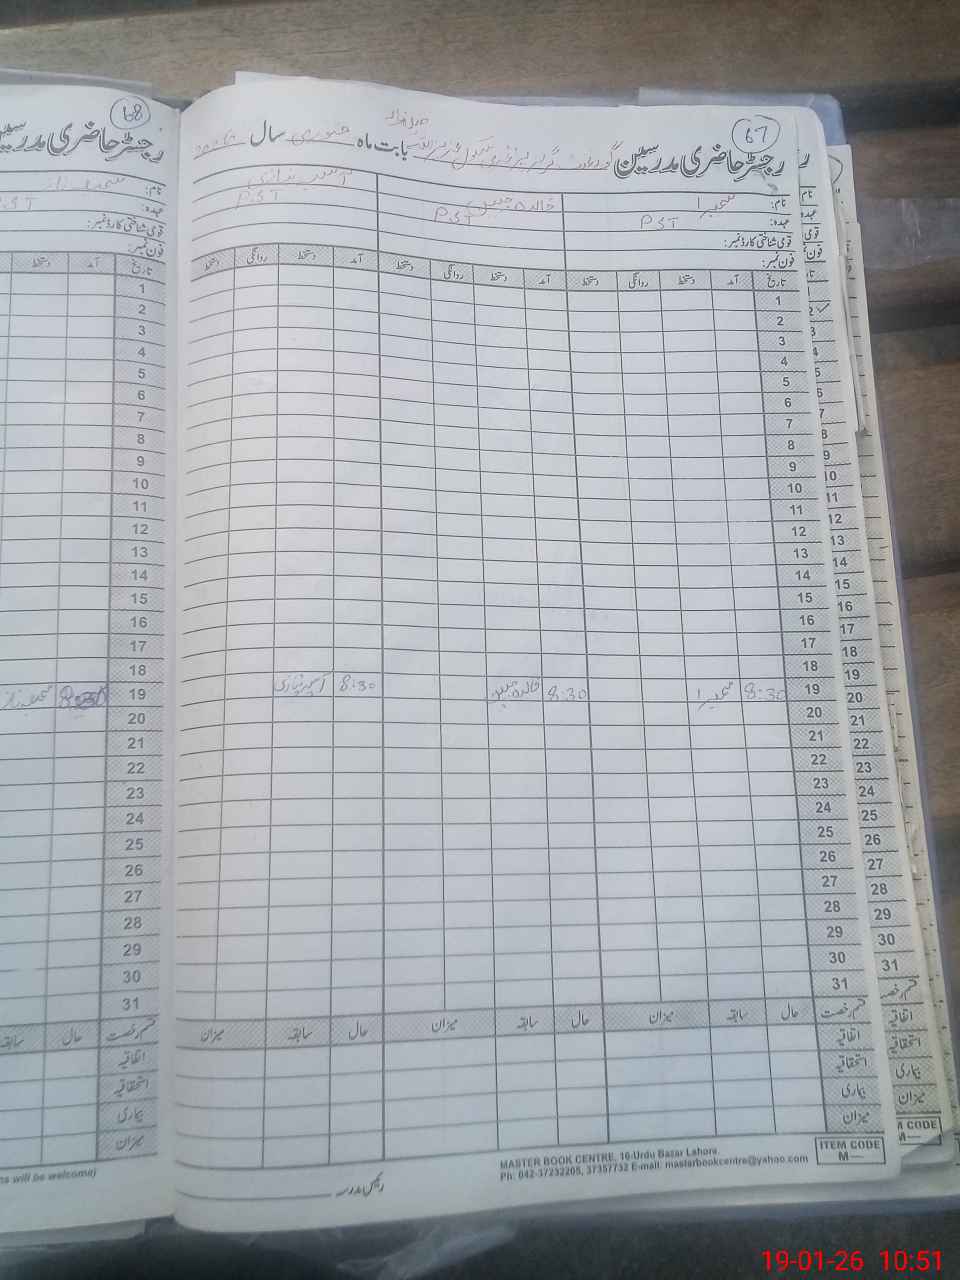 67
رجسٹر حاضری مدرسین گورنمنٹ گرلز پرائمری سکول بابت ماہ جنوری سال
نام: سمیرا خالدہ جبیں
عہدہ: PST PST PST
قومی شناختی کارڈ نمبر:
فون نمبر:
تاریخ آمد دستخط روانگی دستخط آمد دستخط روانگی دستخط آمد دستخط روانگی دستخط
1
2
3
4
5
6
7
8
9
10
11
12
13
14
15
16
17
18
19 8:30 سمیرا 8:30 خالدہ جبیں 8:30
20
21
22
23
24
25
26
27
28
29
30
31
قسم رخصت حال سابقہ میزان حال سابقہ میزان حال سابقہ میزان
اتفاقیہ
استحقاقیہ
بیماری
میزان
ITEM CODE
M—
MASTER BOOK CENTRE, 16-Urdu Bazar Lahore
Ph: 042-37232205, 37357732 E-mail: masterbookcentre@yahoo.com
رئیس مدرسہ
68
رجسٹر حاضری مدرسین
نام:
عہدہ: PST
قومی شناختی کارڈ نمبر:
فون نمبر:
تاریخ آمد دستخط
1
2
3
4
5
6
7
8
9
10
11
12
13
14
15
16
17
18
19
20
21
22
23
24
25
26
27
28
29
30
31
قسم رخصت حال سابقہ
اتفاقیہ
استحقاقیہ
بیماری
میزان
will be welcome)
19-01-26 10:51